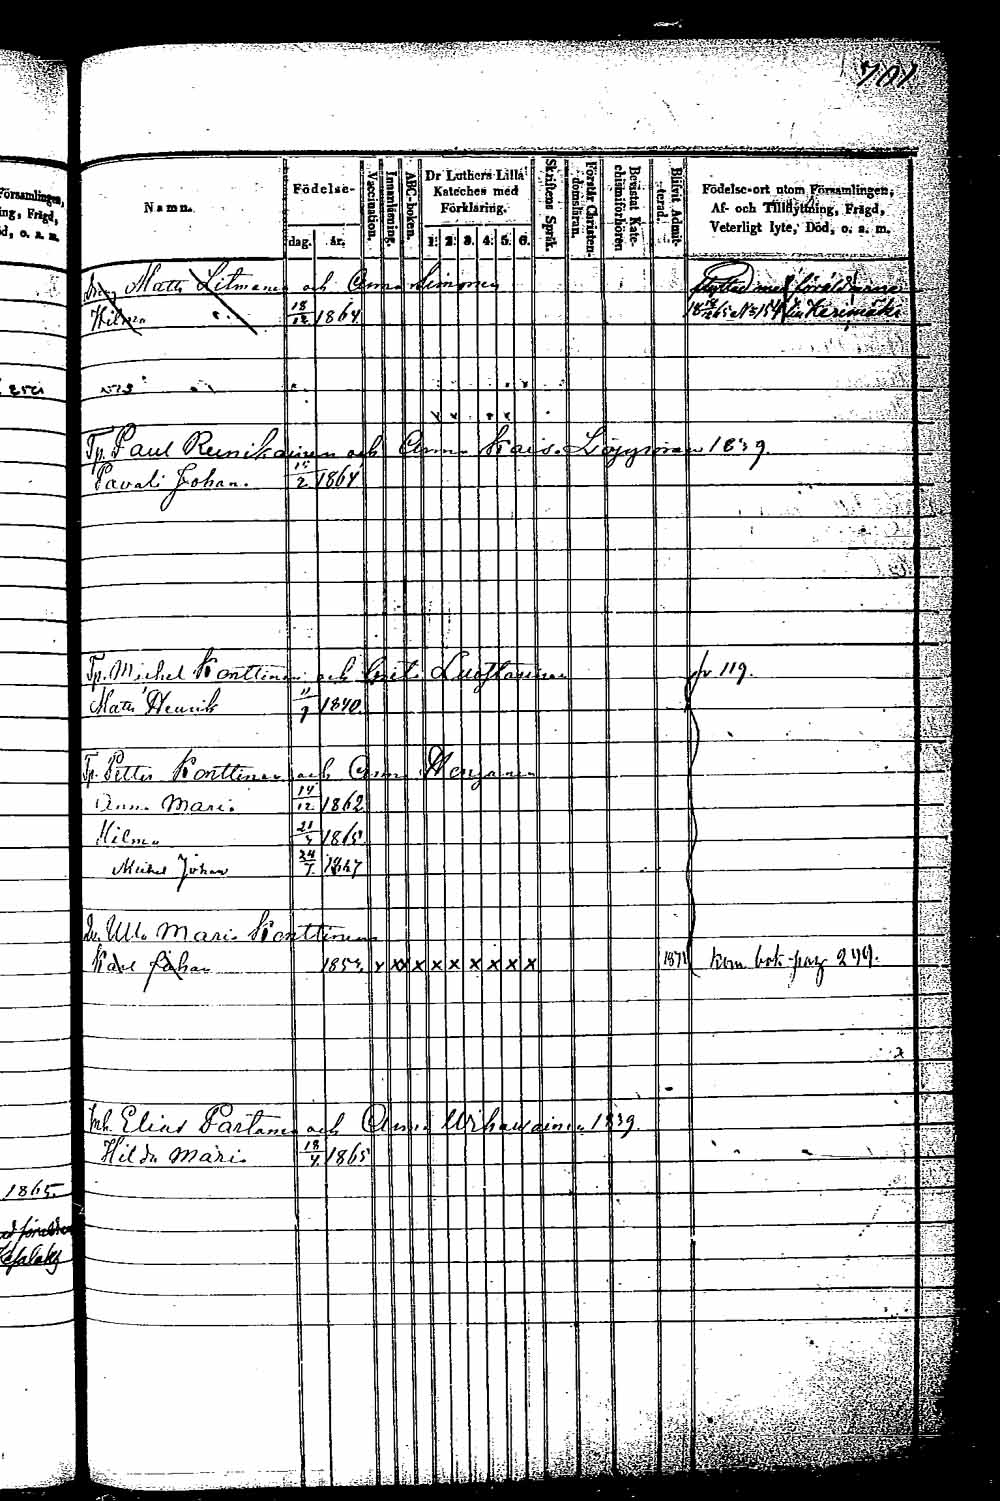 701
Församlingen,
ing, Frägd,
öd, o. s. m.
Namn.
Födelse-
dag. år.
Vaccination.
Innanläsning.
ABC-boken.
Dr Luthers Lilla
Kateches med
Förklaring.
1. 2. 3. 4. 5. 6.
Skriftens Språk.
Förstår Christen-
domsläran.
Bevistat Kate-
chismiförhören
Blifvit Admit-
terad.
Födelse-ort utom Församlingen,
Af- och Tillflyttning, Frägd,
Veterligt lyte, Död, o. s. m.
Matts Litmanen och Anna Simonen
flyttad med föräldrarne
Hilma 18/12 1864
till Kerimäki
Tp. Paul Reinikainen och Anna Kaisa Löppönen 1839.
Pavali Johan. 15/2 1864
Tp. Michel Konttinen och Luostarinen
fr 119.
Matts Henrik 11/9 1840.
Tp. Petter Konttinen och Anna
Anna Maria 14/12 1862
Hilma 21/4 1865
Michel Johan 24/7. 1867
Ulla Maria Konttinen
Karl Johan 1853. x x x x x x x x x 1871 kom. bok. pag 299.
Inh. Elias Partanen och Anna Wihavainen 1839
Hilda Maria 18/4. 1865
1865.